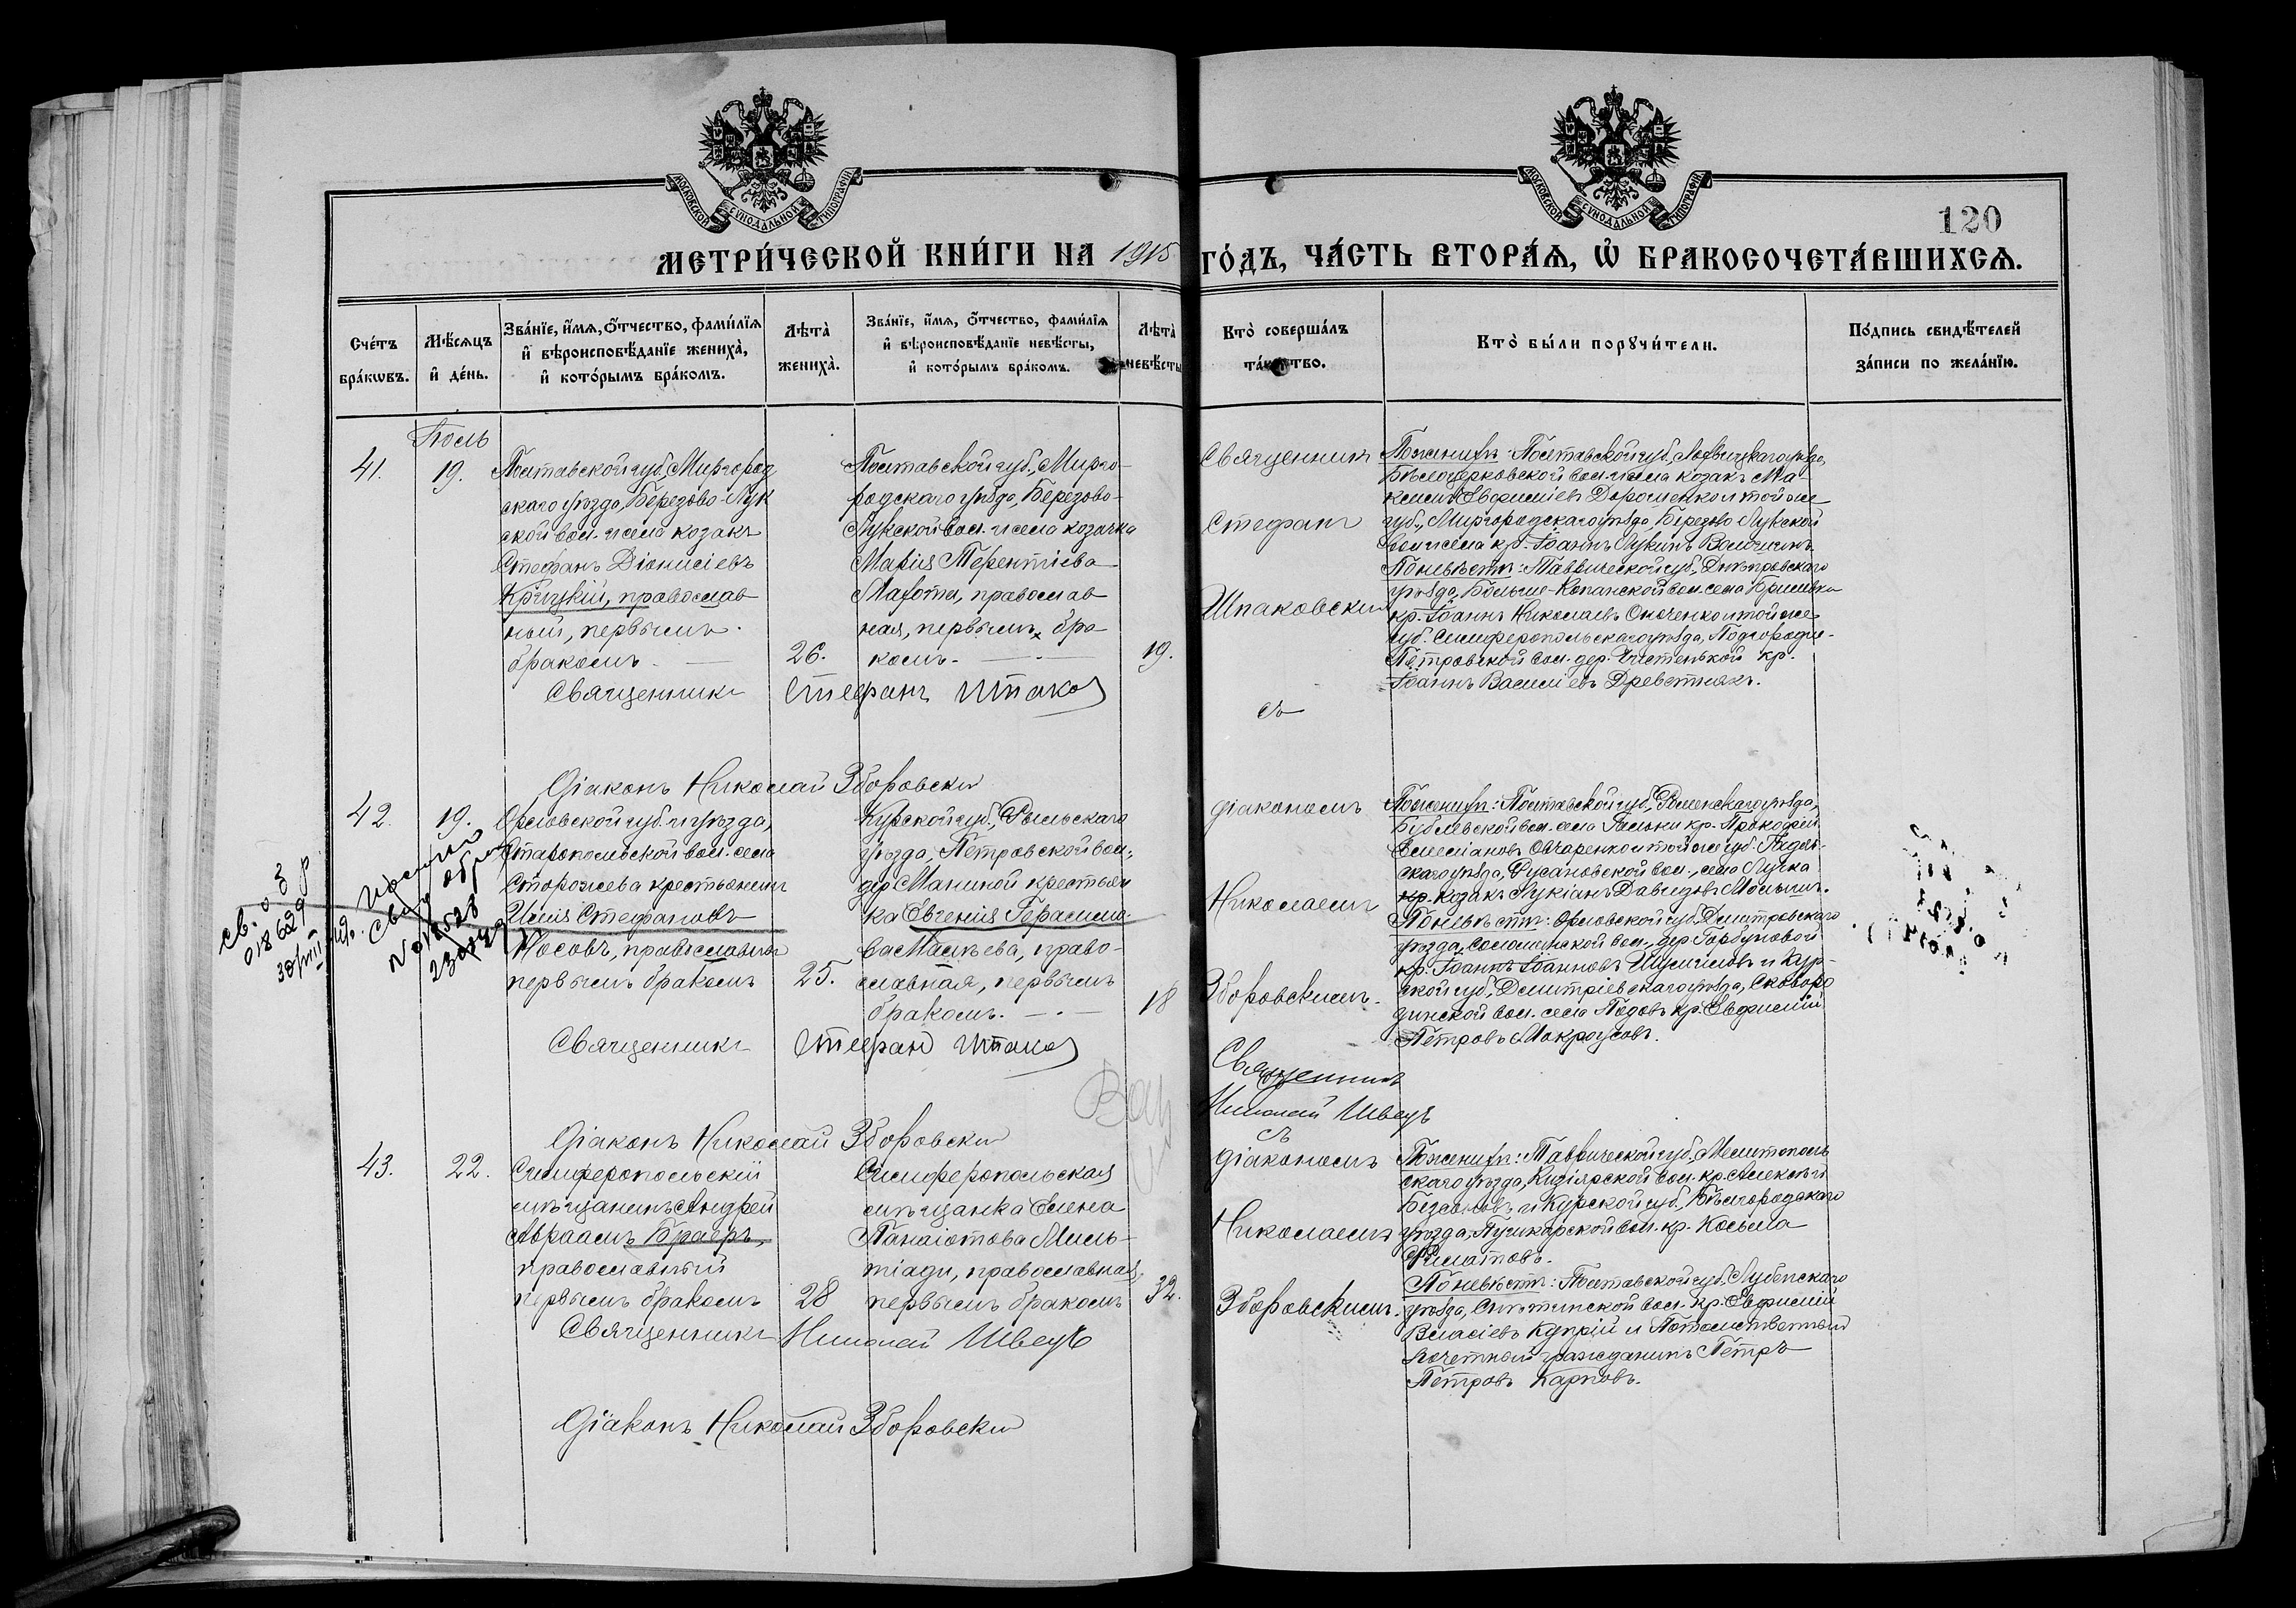 МОСКОВСКОЙ СУНОДАЛЬНОЙ ТИПОГРАФІИ
МОСКОВСКОЙ СУНОДАЛЬНОЙ ТИПОГРАФІИ
120
МЕТРИ́ЧЕСКОЙ КНИ́ГИ НА 1915 ГО́ДЪ, ЧА́СТЬ ВТОРА́Ѧ, Ѽ БРАКОСОЧЕТА́ВШИХСѦ.
Сче́тъ бра́кѡвъ.
Мѣ́сѧцъ и҆ де́нь.
Зва́нїе, и҆́мѧ, ѻ҆́тчество, фами́лїѧ и҆ вѣроисповѣ́данїе жениха̀, и҆ кото́рымъ бра́комъ.
Лѣта̀ жениха̀.
Зва́нїе, и҆́мѧ, ѻ҆́тчество, фами́лїѧ и҆ вѣроисповѣ́данїе невѣ́сты, и҆ кото́рымъ бра́комъ.
Лѣта̀ невѣ́сты
Кто̀ соверша́лъ та́инство.
Кто̀ бы́ли порꙋчи́тели.
По́дпись свидѣ́телей за́писи по жела́нїю.
Іюль
41.
19.
Полтавской губ., Миргород
скаго уѣзда, Березово-Лук
ской вол. и села козакъ
Стефанъ Діонисіевъ
Крицкій, православ
ный, первымъ
бракомъ. —
26.
Полтавской губ., Мирго-
родскаго уѣзда, Березово-
Лукской вол. и села козачка
Марія Терентіева
Махота, православ
ная, первымъ бра-
комъ. —
19.
Священникъ
Стефанъ
Шпаковскій
съ
По женихѣ: Полтавской губ., Лохвицкаго уѣзда,
Бѣлоцерковской вол. и села козакъ Ма-
ксимъ Евфиміевъ Дорошенко и той же
губ., Миргородскаго уѣзда, Березово Лукской
вол. и села кр. Іоаннъ Лукинъ
По невѣстѣ: Таврической губ., Днѣпровскаго
уѣзда, Больше-Копанской вол. села Брилевки
кр. Іоаннъ Николаевъ и той же
губ. Симферопольскаго уѣзда, Подгородне-
Петровской вол. дер. Чистенькой кр.
Іоаннъ Василіевъ Древетнякъ.
Священникъ Стефанъ Шпаков
Діаконъ Николай Зборовскій
42.
19.
Орловской губ. и уѣзда,
Старопольской вол. села
Сторожева крестьянинъ
Илія Стефановъ
Носовъ, православный
первымъ бракомъ
25.
Курской губ., Рыльскаго
уѣзда, Петровской вол.,
дер. Маниной крестьян
ка Евгенія Герасимо-
ва Малѣева, право-
славная, первымъ
бракомъ. —
18
діакономъ
Николаемъ
Зборовскимъ.
Священникъ
Николай Швецъ
съ
По женихѣ: Полтавской губ., Роменскаго уѣзда,
села кр. Прокофій
Емеліановъ Овчаренко и той же губ. Гадяч-
скаго уѣзда, Русановской вол., села Лучка
кр. козакъ Лукіанъ Давидовъ
По невѣстѣ: Орловской губ., Дмитровскаго
уѣзда, Соломинской вол., дер. Горбуновой
кр. Іоаннъ Іоанновъ и Кур-
ской губ., Дмитріевскаго уѣзда, Сковоро
динской вол. села кр. Евфимій
Петровъ Мокроусовъ.
св.
018629
№ 018528
Священникъ Стефанъ Шпаков
Діаконъ Николай Зборовскій
43.
22.
Симферопольскій
мѣщанинъ Андрей
Авраамъ Браеръ,
православный
первымъ бракомъ
28
Симферопольская
мѣщанка Елена
Панаіотова Миль-
тіади, православная,
первымъ бракомъ
32.
діакономъ
Николаемъ
Зборовскимъ.
По женихѣ: Таврической губ., Мелитополь
скаго уѣзда, Кизіярской вол. кр. Алексѣй
и Курской губ., Бѣлгородскаго
уѣзда, Пушкарской вол. кр. Косьма
Филатовъ.
По невѣстѣ: Полтавской губ., Лубенскаго
уѣзда, Снѣтинской вол. кр. Евфимій
Власіевъ Купрій и Потомственный
почетный гражданинъ Петръ
Петровъ Карповъ.
Священникъ Николай Швецъ
Діаконъ Николай Зборовскій